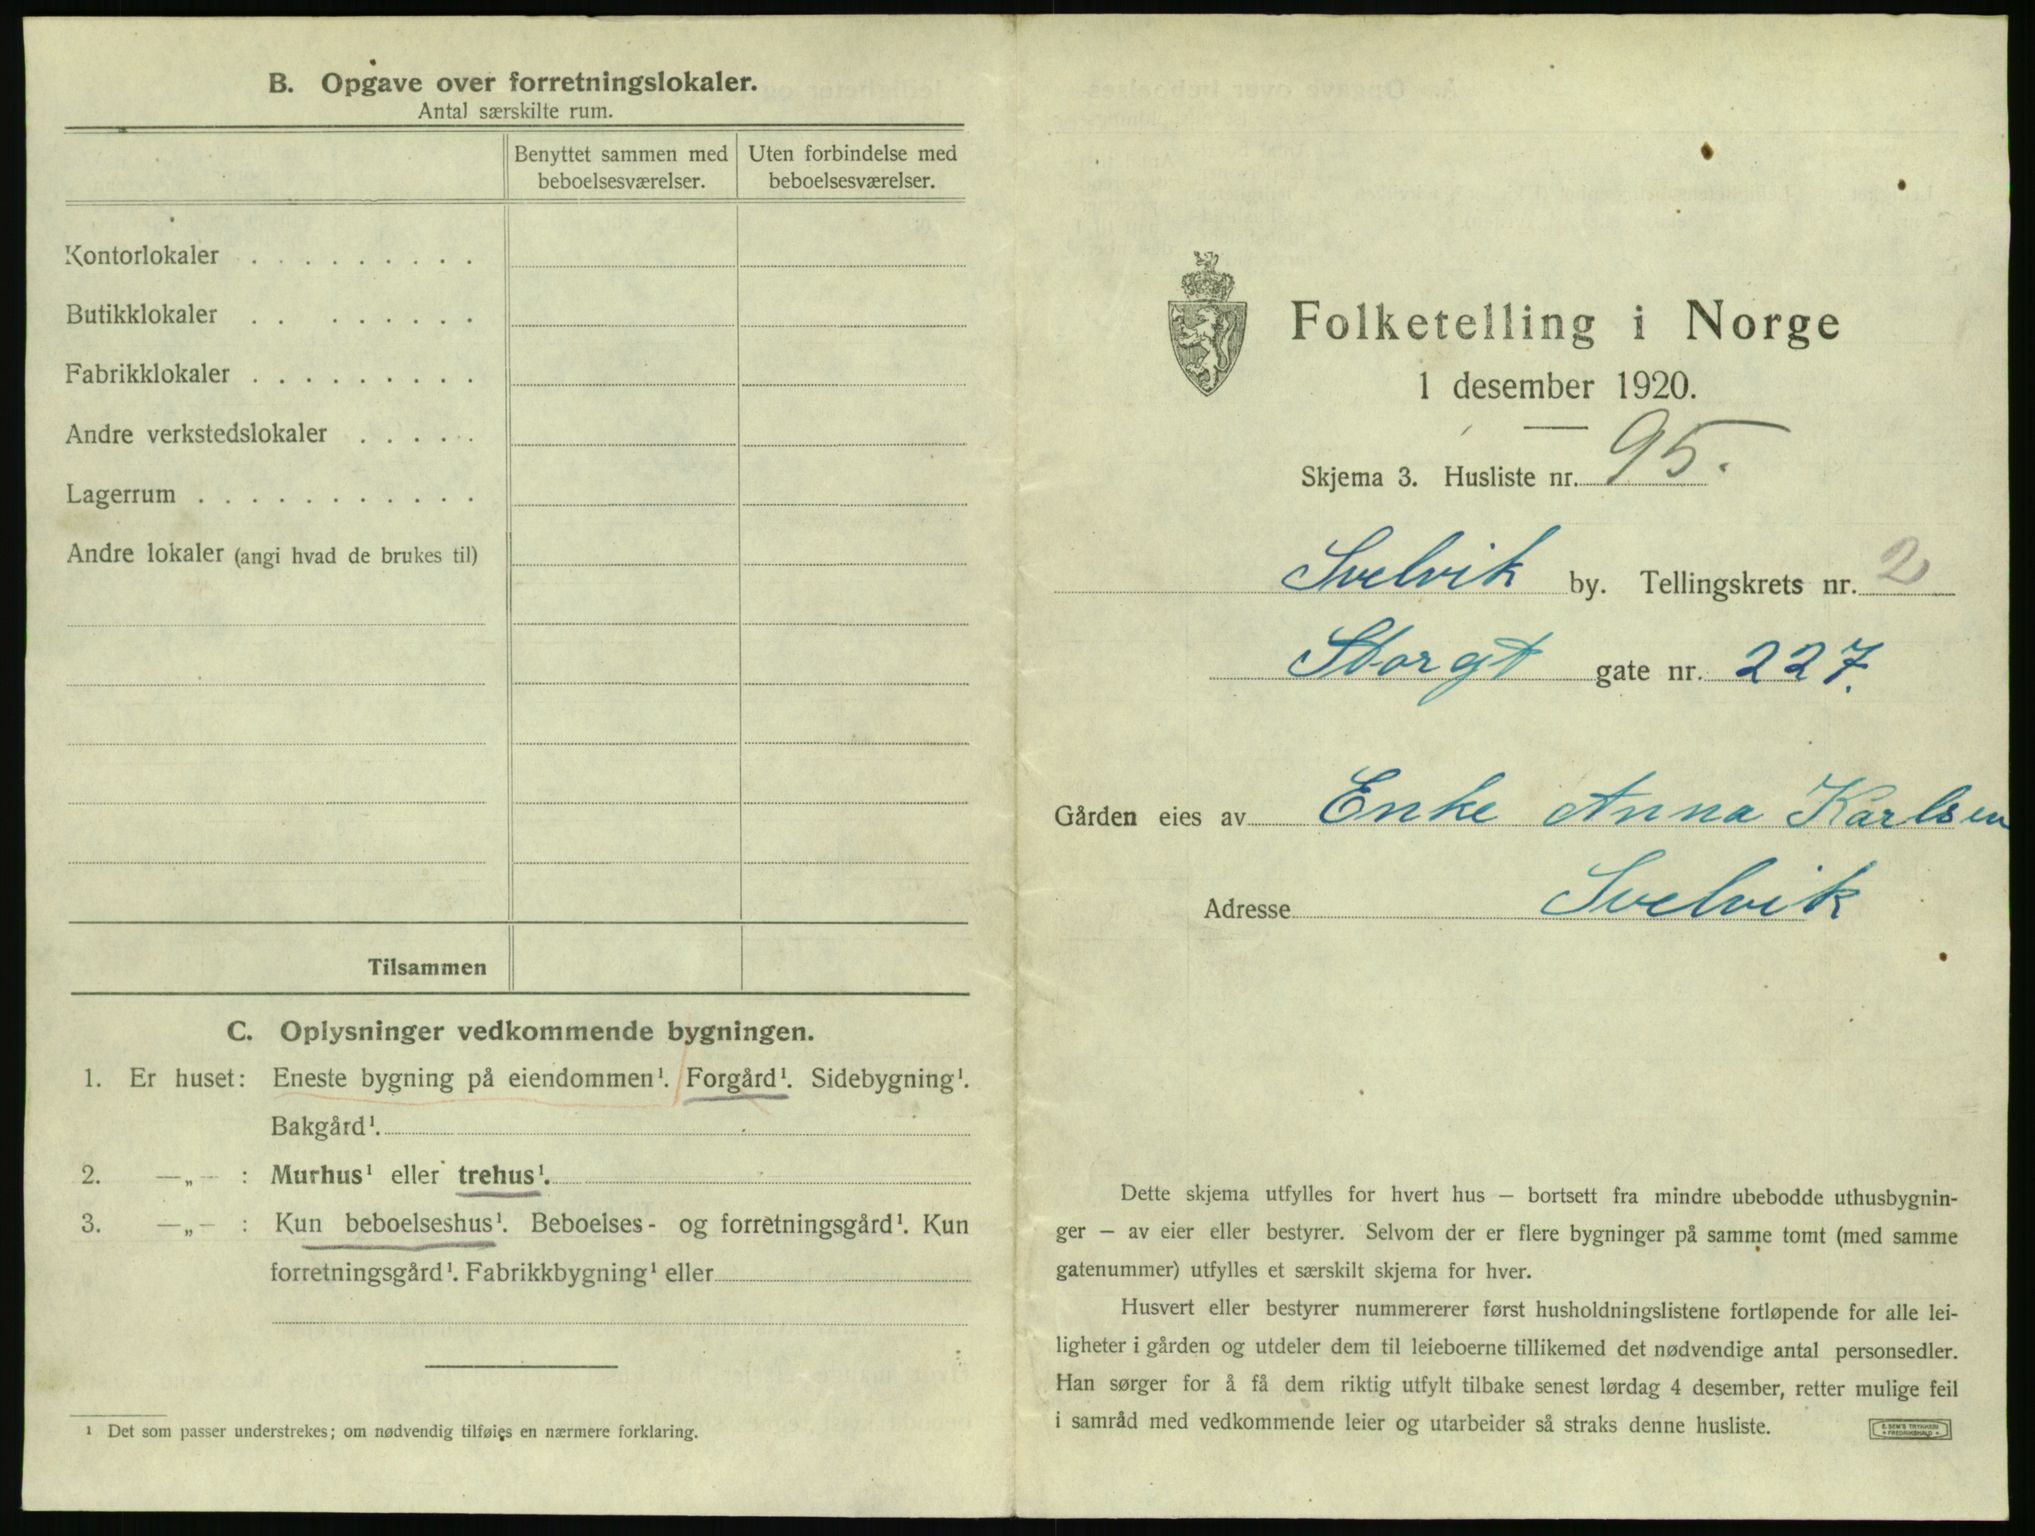 B. Opgave over forretningslokaler.
Antal særskilte rum.
Benyttet sammen med beboelsesværelser.
Uten forbindelse med beboelsesværelser.
Kontorlokaler . . . . . . . . .
Butikklokaler . . . . . . . .
Fabrikklokaler . . . . . . . . .
Andre verkstedslokaler . . . . .
Lagerrum . . . . . . . . . . .
Andre lokaler (angi hvad de brukes til)
Tilsammen
C. Oplysninger vedkommende bygningen.
1. Er huset: Eneste bygning på eiendommen¹. Forgård¹. Sidebygning¹.
Bakgård¹.
2. —„— : Murhus¹ eller trehus¹.
3. —„— : Kun beboelseshus¹. Beboelses- og forretningsgård¹. Kun
forretningsgård¹. Fabrikkbygning¹ eller
¹ Det som passer understrekes; om nødvendig tilføies en nærmere forklaring.
Folketelling i Norge
1 desember 1920.
Skjema 3. Husliste nr. 95.
Svelvik by. Tellingskrets nr. 2
Storgt gate nr. 227.
Gården eies av Enke Anna Karlsen
Adresse Svelvik
Dette skjema utfylles for hvert hus — bortsett fra mindre ubebodde uthusbygnin-
ger — av eier eller bestyrer. Selvom der er flere bygninger på samme tomt (med samme
gatenummer) utfylles et særskilt skjema for hver.
Husvert eller bestyrer nummererer først husholdningslistene fortløpende for alle lei-
ligheter i gården og utdeler dem til leieboerne tillikemed det nødvendige antal personsedler.
Han sørger for å få dem riktig utfylt tilbake senest lørdag 4 desember, retter mulige feil
i samråd med vedkommende leier og utarbeider så straks denne husliste.
E. SEM'S TRYKKERI
FREDRIKSHALD